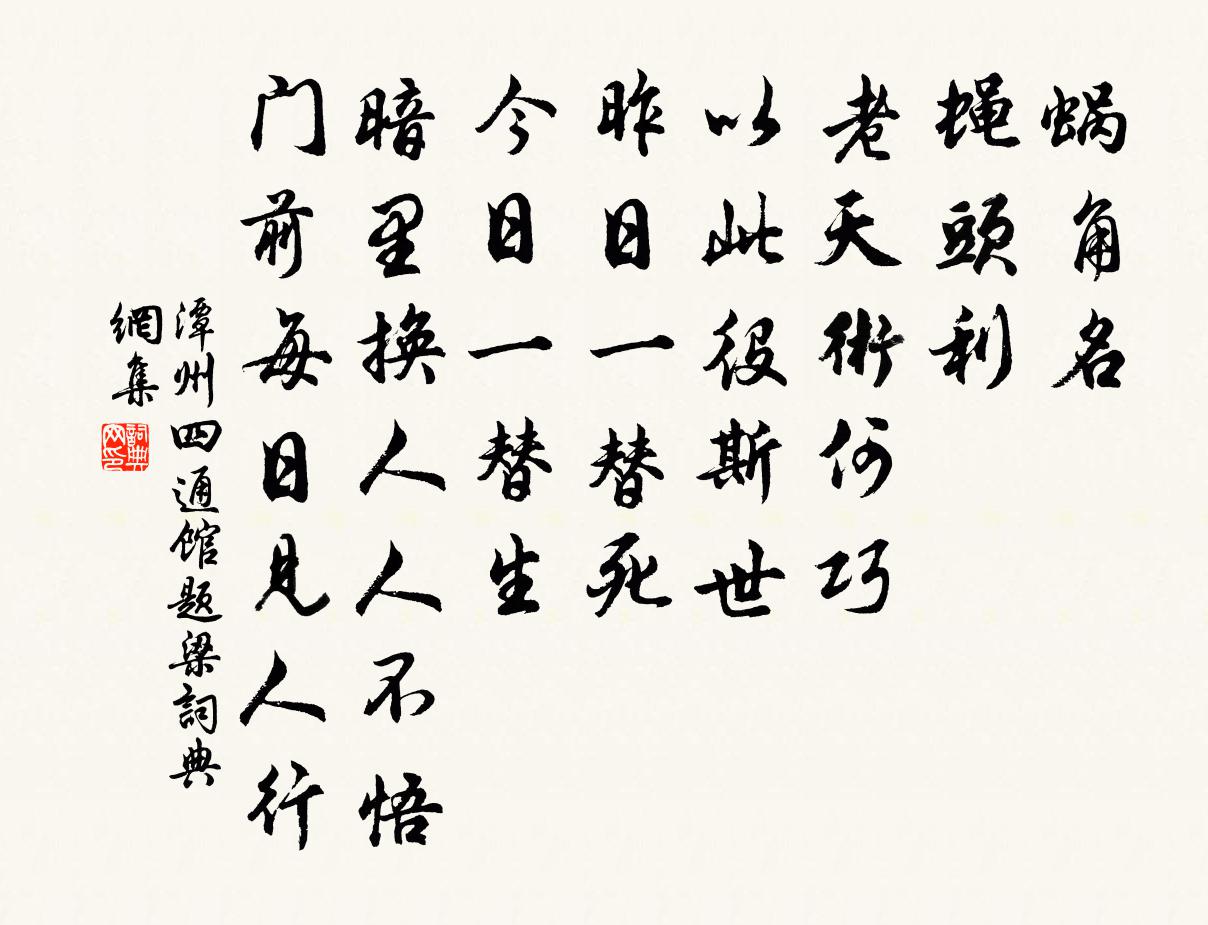 蜗角名
蝇頭利
老天術何巧
以此役斯世
昨日一替死
今日一替生
暗里換人人不悟
门前每日見人行
潭州四通館题梁詞典
網集
詞典
网印